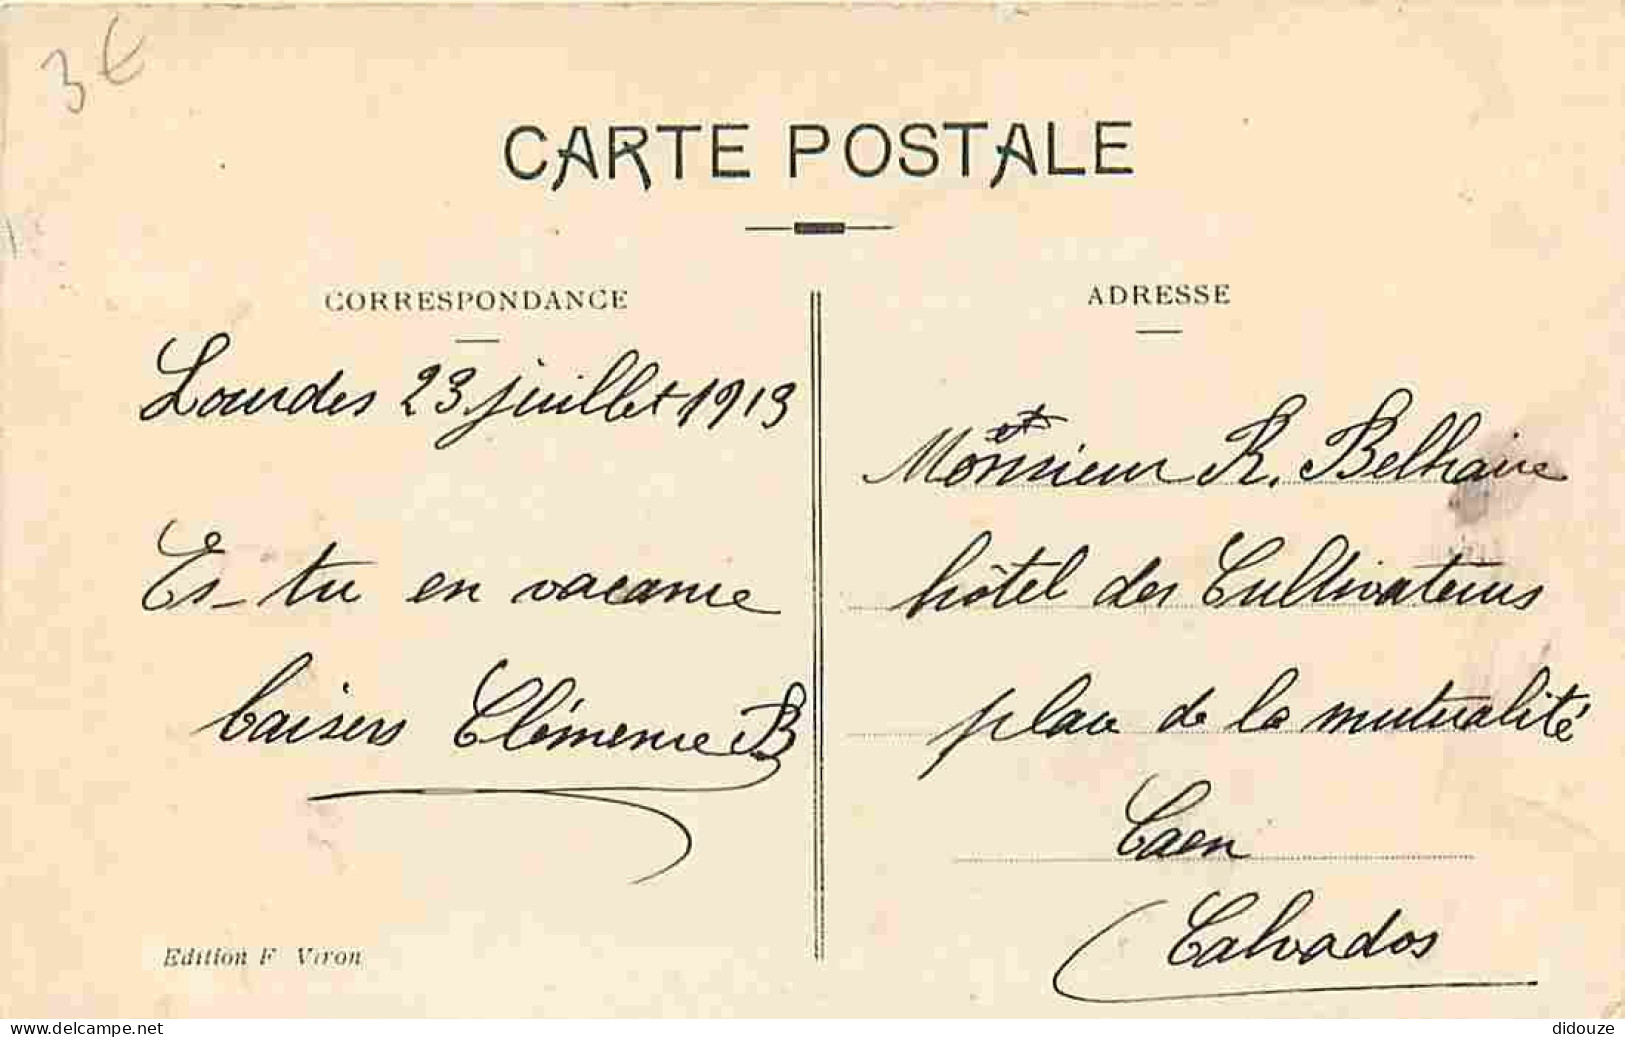 3€
CARTE POSTALE
CORRESPONDANCE
Lourdes 23 juillet 1913
Es-tu en vacance
baisers Clémence B
Edition F. Viron
ADRESSE
Monsieur R. Belhaire
hôtel des Cultivateurs
place de la mutualité
Caen
Calvados
www.delcampe.net
didouze